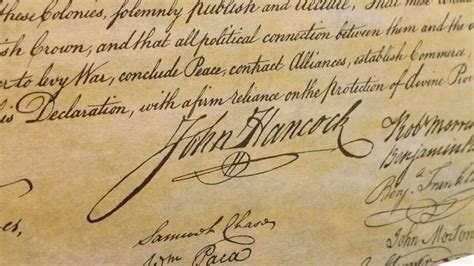 these Colonies, solemnly publish and declare, That
ish Crown, and that all political connection between them and the
er to levy War, conclude Peace, contract Alliances, establish Commerce
is Declaration, with a firm reliance on the protection of divine Prov
John Hancock
Rob Morris
Benjamin
Benj. Franklin
Samuel Chase
John Morton
Wm Paca